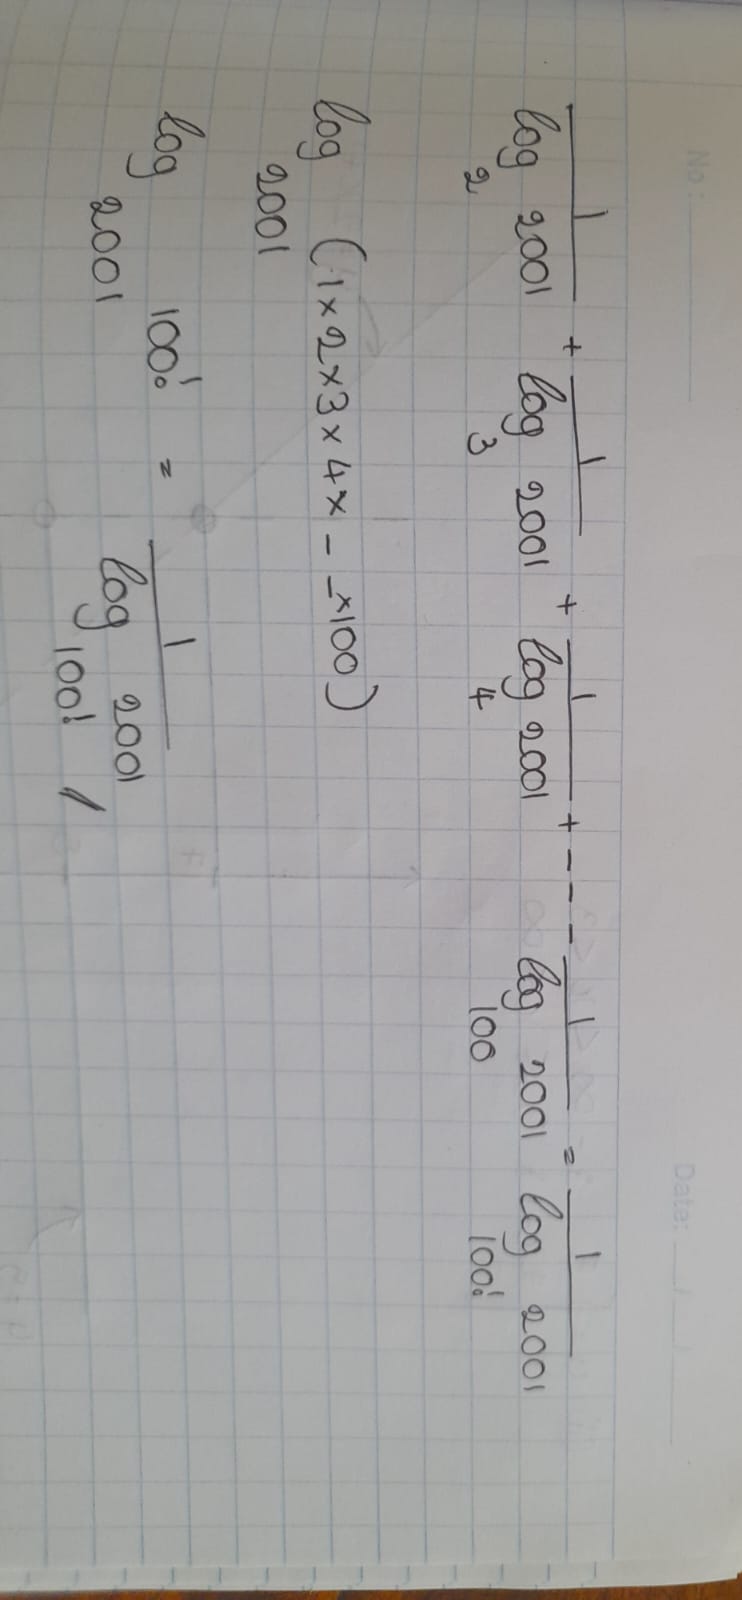 No :
Date: / /
1/log₂ 2001 + 1/log₃ 2001 + 1/log₄ 2001 + - - - 1/log₁₀₀ 2001 = 1/log₁₀₀! 2001
log₂₀₀₁ (1×2×3×4×- -×100)
log₂₀₀₁ 100! = 1/log₁₀₀! 2001 //